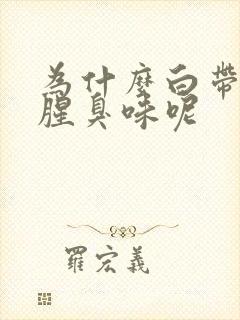 为什麼白帶
腥臭味呢
羅宏義